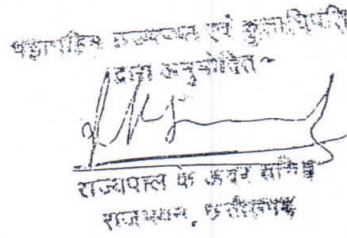 महामहिम राज्यपाल एवं कुलाधिपति
द्वारा अनुमोदित
राज्यपाल के अवर सचिव
राजभवन, छत्तीसगढ़